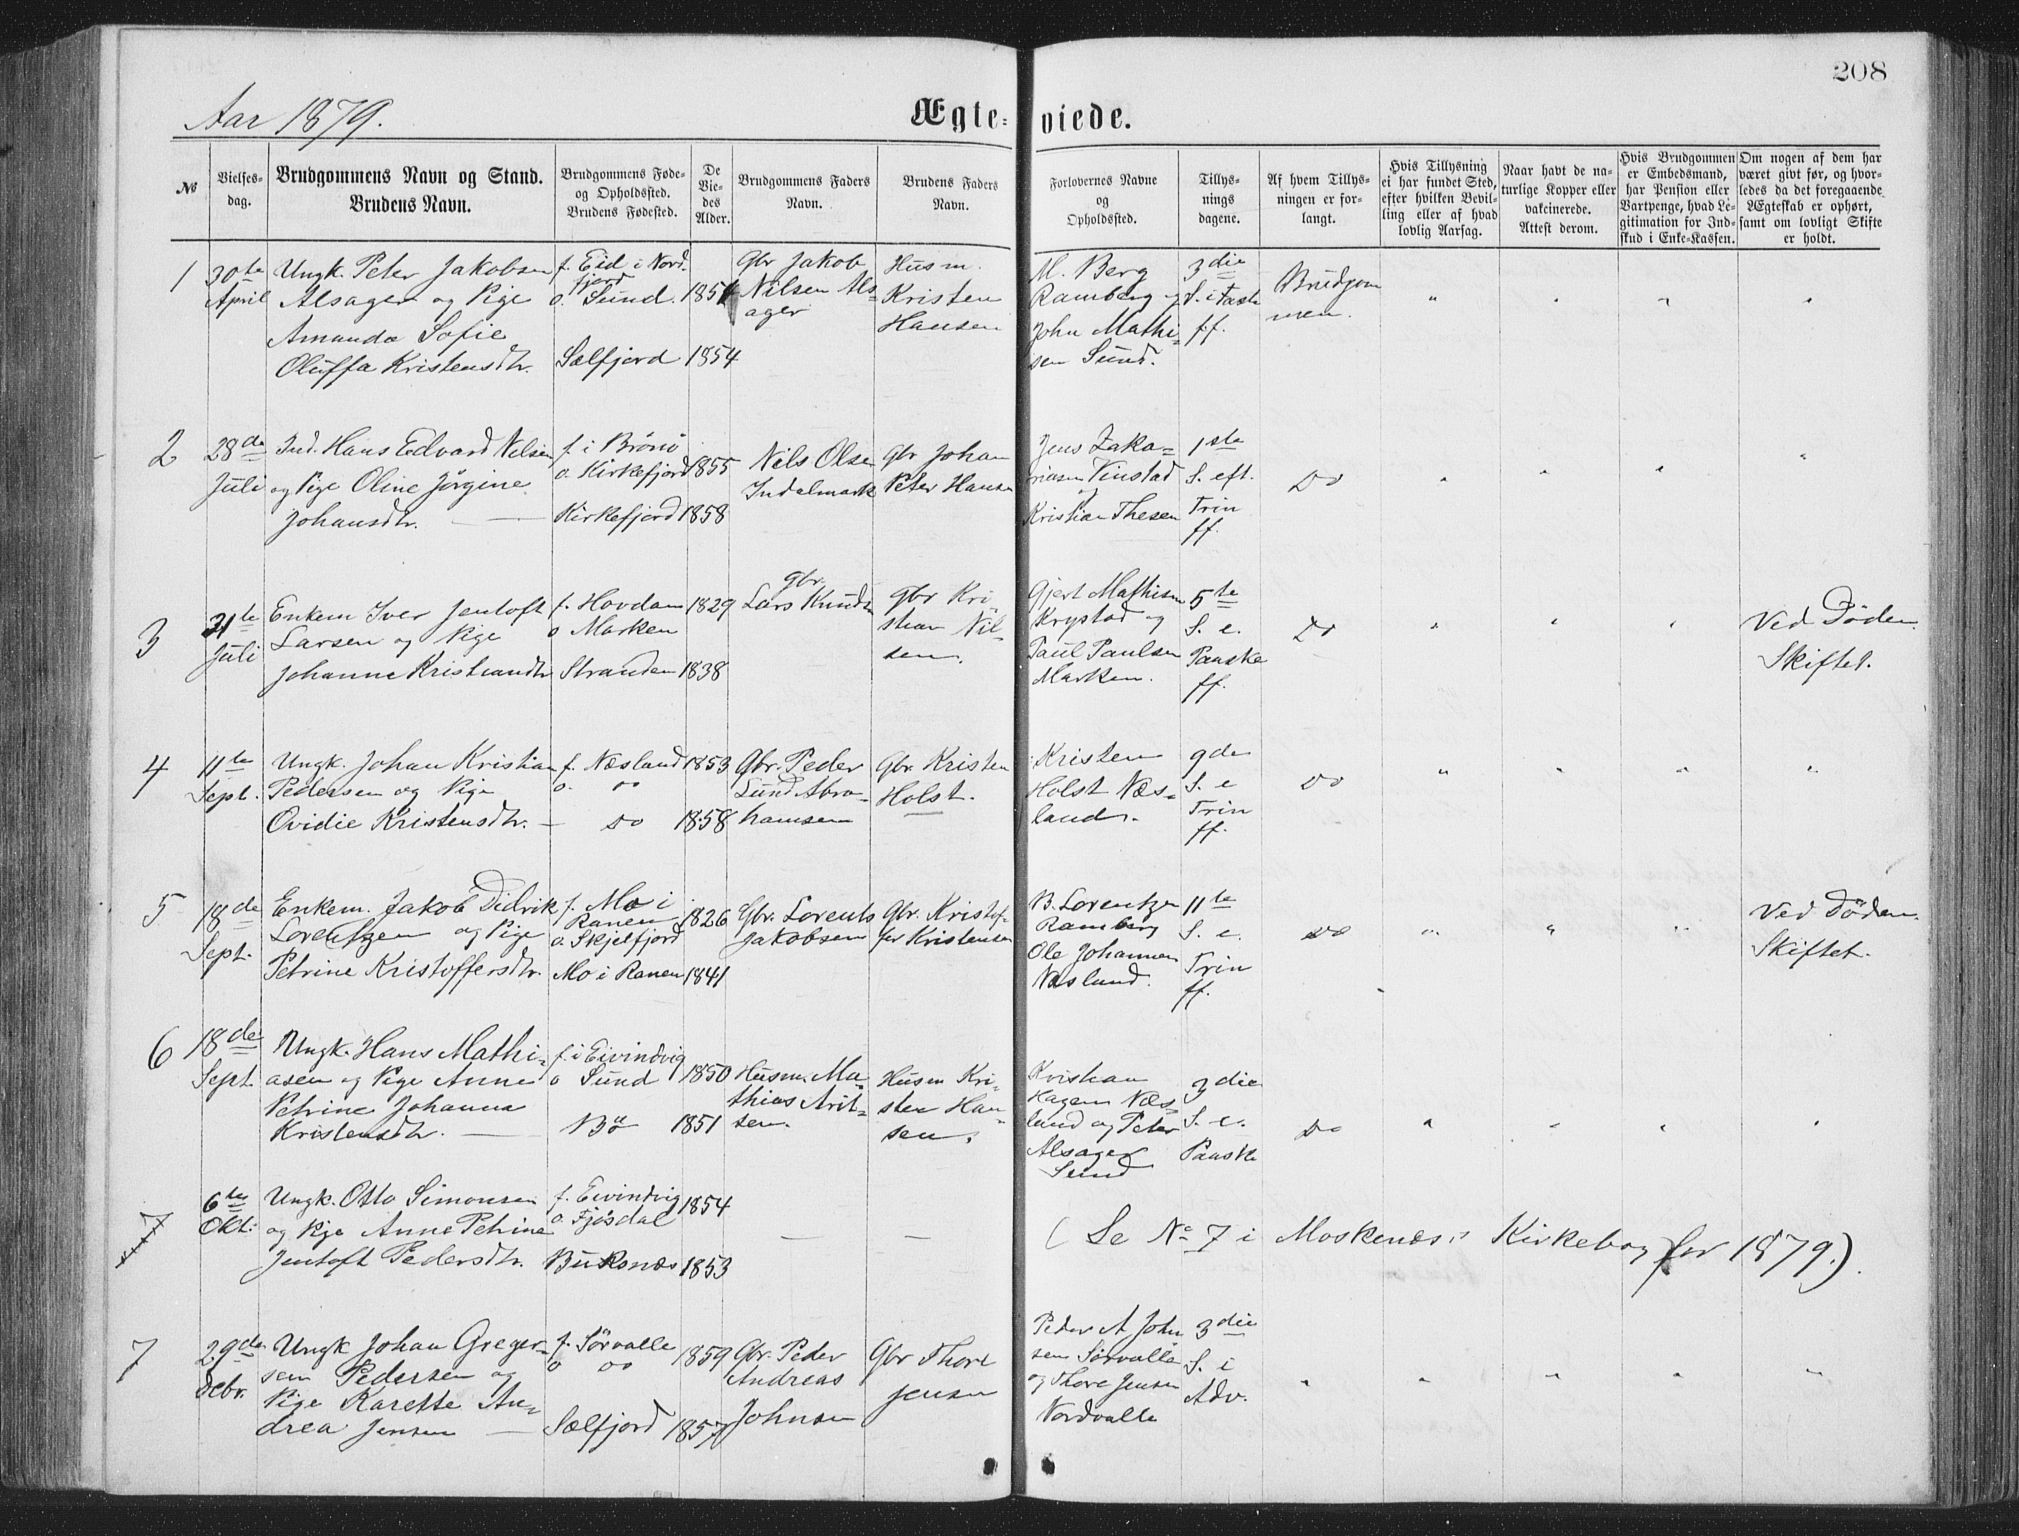 208
Aar 1879.
Ægteviede.
№
Vielsesdag.
Brudgommens Navn og Stand.
Brudens Navn.
Brudgommens Føde- og Opholdssted.
Brudens Fødested.
De Viedes Alder.
Brudgommens Faders Navn.
Brudens Faders Navn.
Forlovernes Navne og Opholdssted.
Tillysningsdagene.
Af hvem Tillysningen er forlangt.
Hvis Tillysning ei har fundet Sted, efter hvilken Bevilling eller af hvad lovlig Aarsag.
Naar havt de naturlige Kopper eller vakcinerede. Attest derom.
Hvis Brudgommen er Embedsmand, har Pension eller Vartpenge, hvad Legitimation for Indskud i Enke-Kassen.
Om nogen af dem har været givt før, og hvorledes da det foregaaende Ægteskab er ophørt, samt om lovligt Skifte er holdt.
1
30te April
Ungk. Peter Jakobsen
Alsager og Pige
Amanda Sofie
Oluffa Kristensdtr.
f. Eid i Nord-
fjord
o. Sund. 1854
Sælfjord 1854
Gbr Jakob
Nilsen Als-
ager
Husm.
Kristen
Hansen
M. Berg
Ramberg og
John Mathi-
sen Sund.
3die
S. i Faste
ff.
Brudgom
men.
2
28de Juli
Ind. Hans Edvard Nilsen
og Pige Oline Jörgine
Johansdtr.
f. i Brönö
o. Kirkefjord 1855
Kirkefjord 1858
Nils Olsen
Indalmark
Gbr Johan
Peter Hansen
Jens Zaka-
riasen Vinstad
og
Kristian Thesen
1ste
S. eft.
Trin
ff.
Do
3
31te Juli
Enkem Iver Jentoft
Larsen og Pige
Johanne Kristiandtr
f. Hovdan 1829
o Marken
Stranden 1838
gbr.
Lars Knudsen
Gbr Kri
stian Nil-
sen.
Gjert Mathisen
Krystad og
Paul Paulsen
Marken.
5te
S. e.
Paaske
ff.
Do
Ved Döden.
Skiftet.
4
11te Sept.
Ungk. Johan Kristian
Pedersen og Pige
Ovidie Kristensdtr.
f. Næsland 1853
o. Do
Do 1858
Gbr. Peder
Lund Abra-
hamsen
Gbr. Kristen
Holst.
Kristen
Holst Næs-
land.
9de
S. e
Trin
ff.
Do
5
18de Sept.
Enkem. Jakob Didrik
Lorentzen og Pige
Petrine Kristoffersdtr.
f. Mo i
Ranen 1826
o. Skjelfjord
Mo i Ranen 1841
Gbr. Lorents
Jakobsen
Gbr. Kristof-
fer Kristensen
B. Lorentzen
Ramberg
Ole Johannesen
Næsland.
11te
S. e.
Trin
ff.
Do
Ved Döden.
Skiftet.
6
18de Sept.
Ungk. Hans Mathi-
asen og Pige Anne
Petrine Johanna
Kristensdtr.
f. i Eivindvig
o Sund 1850
Bö 1851
Husm. Ma-
thias Arit-
sen.
Husm Kri-
sten Han-
sen.
Kristian
Hagen Næs-
land og Peter
Alsager
Sund
3die
S. e.
Paaske
Do
7
6te Okt.
Ungk. Otto Simonsen
og Pige Anne Petrine
Jentoft Pedersdtr.
f. Eivindvig 1854
o. Fjösdal
Buksnæs 1853
(Se № 7 i Moskenæs Kirkebog for 1879.)
7
29de Debr.
Ungk Johan Greger-
sen Pedersen og
Pige Karette An-
drea Jensen
f. Sörvalle
o Do 1859
Sælfjord 1857
Gbr. Peder
Andreas
Johnsen
Gbr Thore
Jensen
Peder A John
sen Sörvalle
og Thore Jensen
Nordvalle
3die
S. i
Adv.